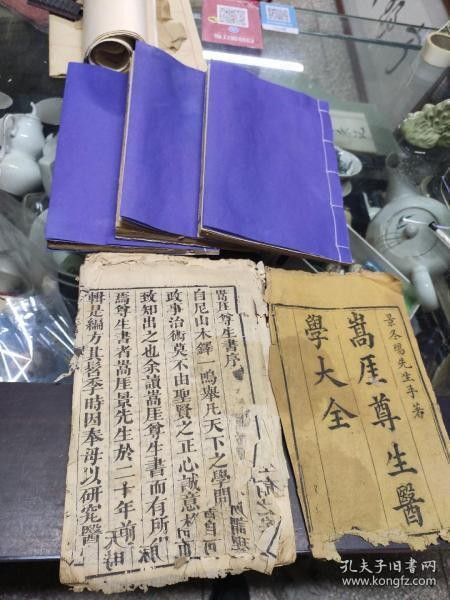 景冬陽先生手著
嵩厓尊生醫
學大全
嵩厓尊生書序
自尼山木鐸 鳴舉凡天下之學問
政事治術莫不由聖賢之正心誠意
致知出之也余讀嵩厓尊生書而有所
焉尊生書者嵩厓景先生於二十年前
輯是編方其髫季時因奉母以研究醫
孔夫子旧书网
www.kongfz.com